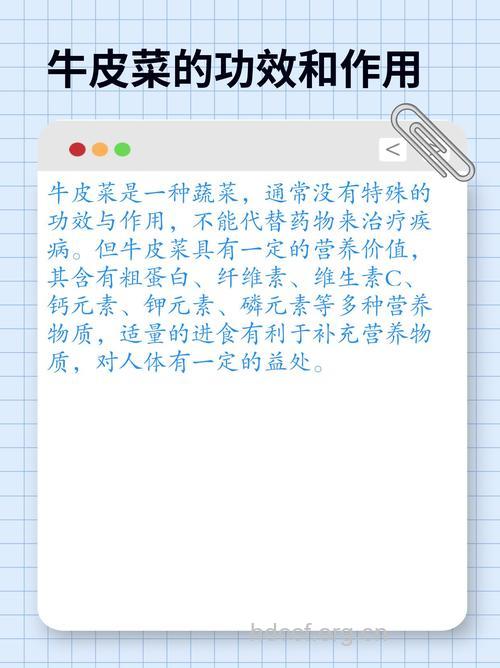 牛皮菜的功效和作用
<
牛皮菜是一种蔬菜，通常没有特殊的
功效与作用，不能代替药物来治疗疾
病。但牛皮菜具有一定的营养价值，
其含有粗蛋白、纤维素、维生素C、
钙元素、钾元素、磷元素等多种营养
物质，适量的进食有利于补充营养物
质，对人体有一定的益处。